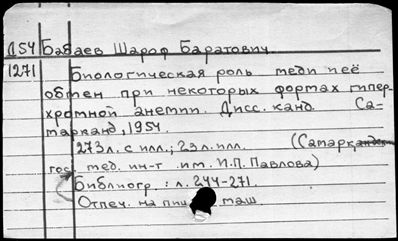 Д54 Бабаев Шароф Баратович
1271 Биологическая роль меди и её
обмен при некоторых формах гипер-
хромной анемии. Дисс. канд. Са-
марканд, 1954.
273л. с илл.; 23л. илл. (Самарканд
гос. мед. ин-т им. И.П. Павлова)
Библиогр.: л. 244-271.
Отпеч. на пиш маш